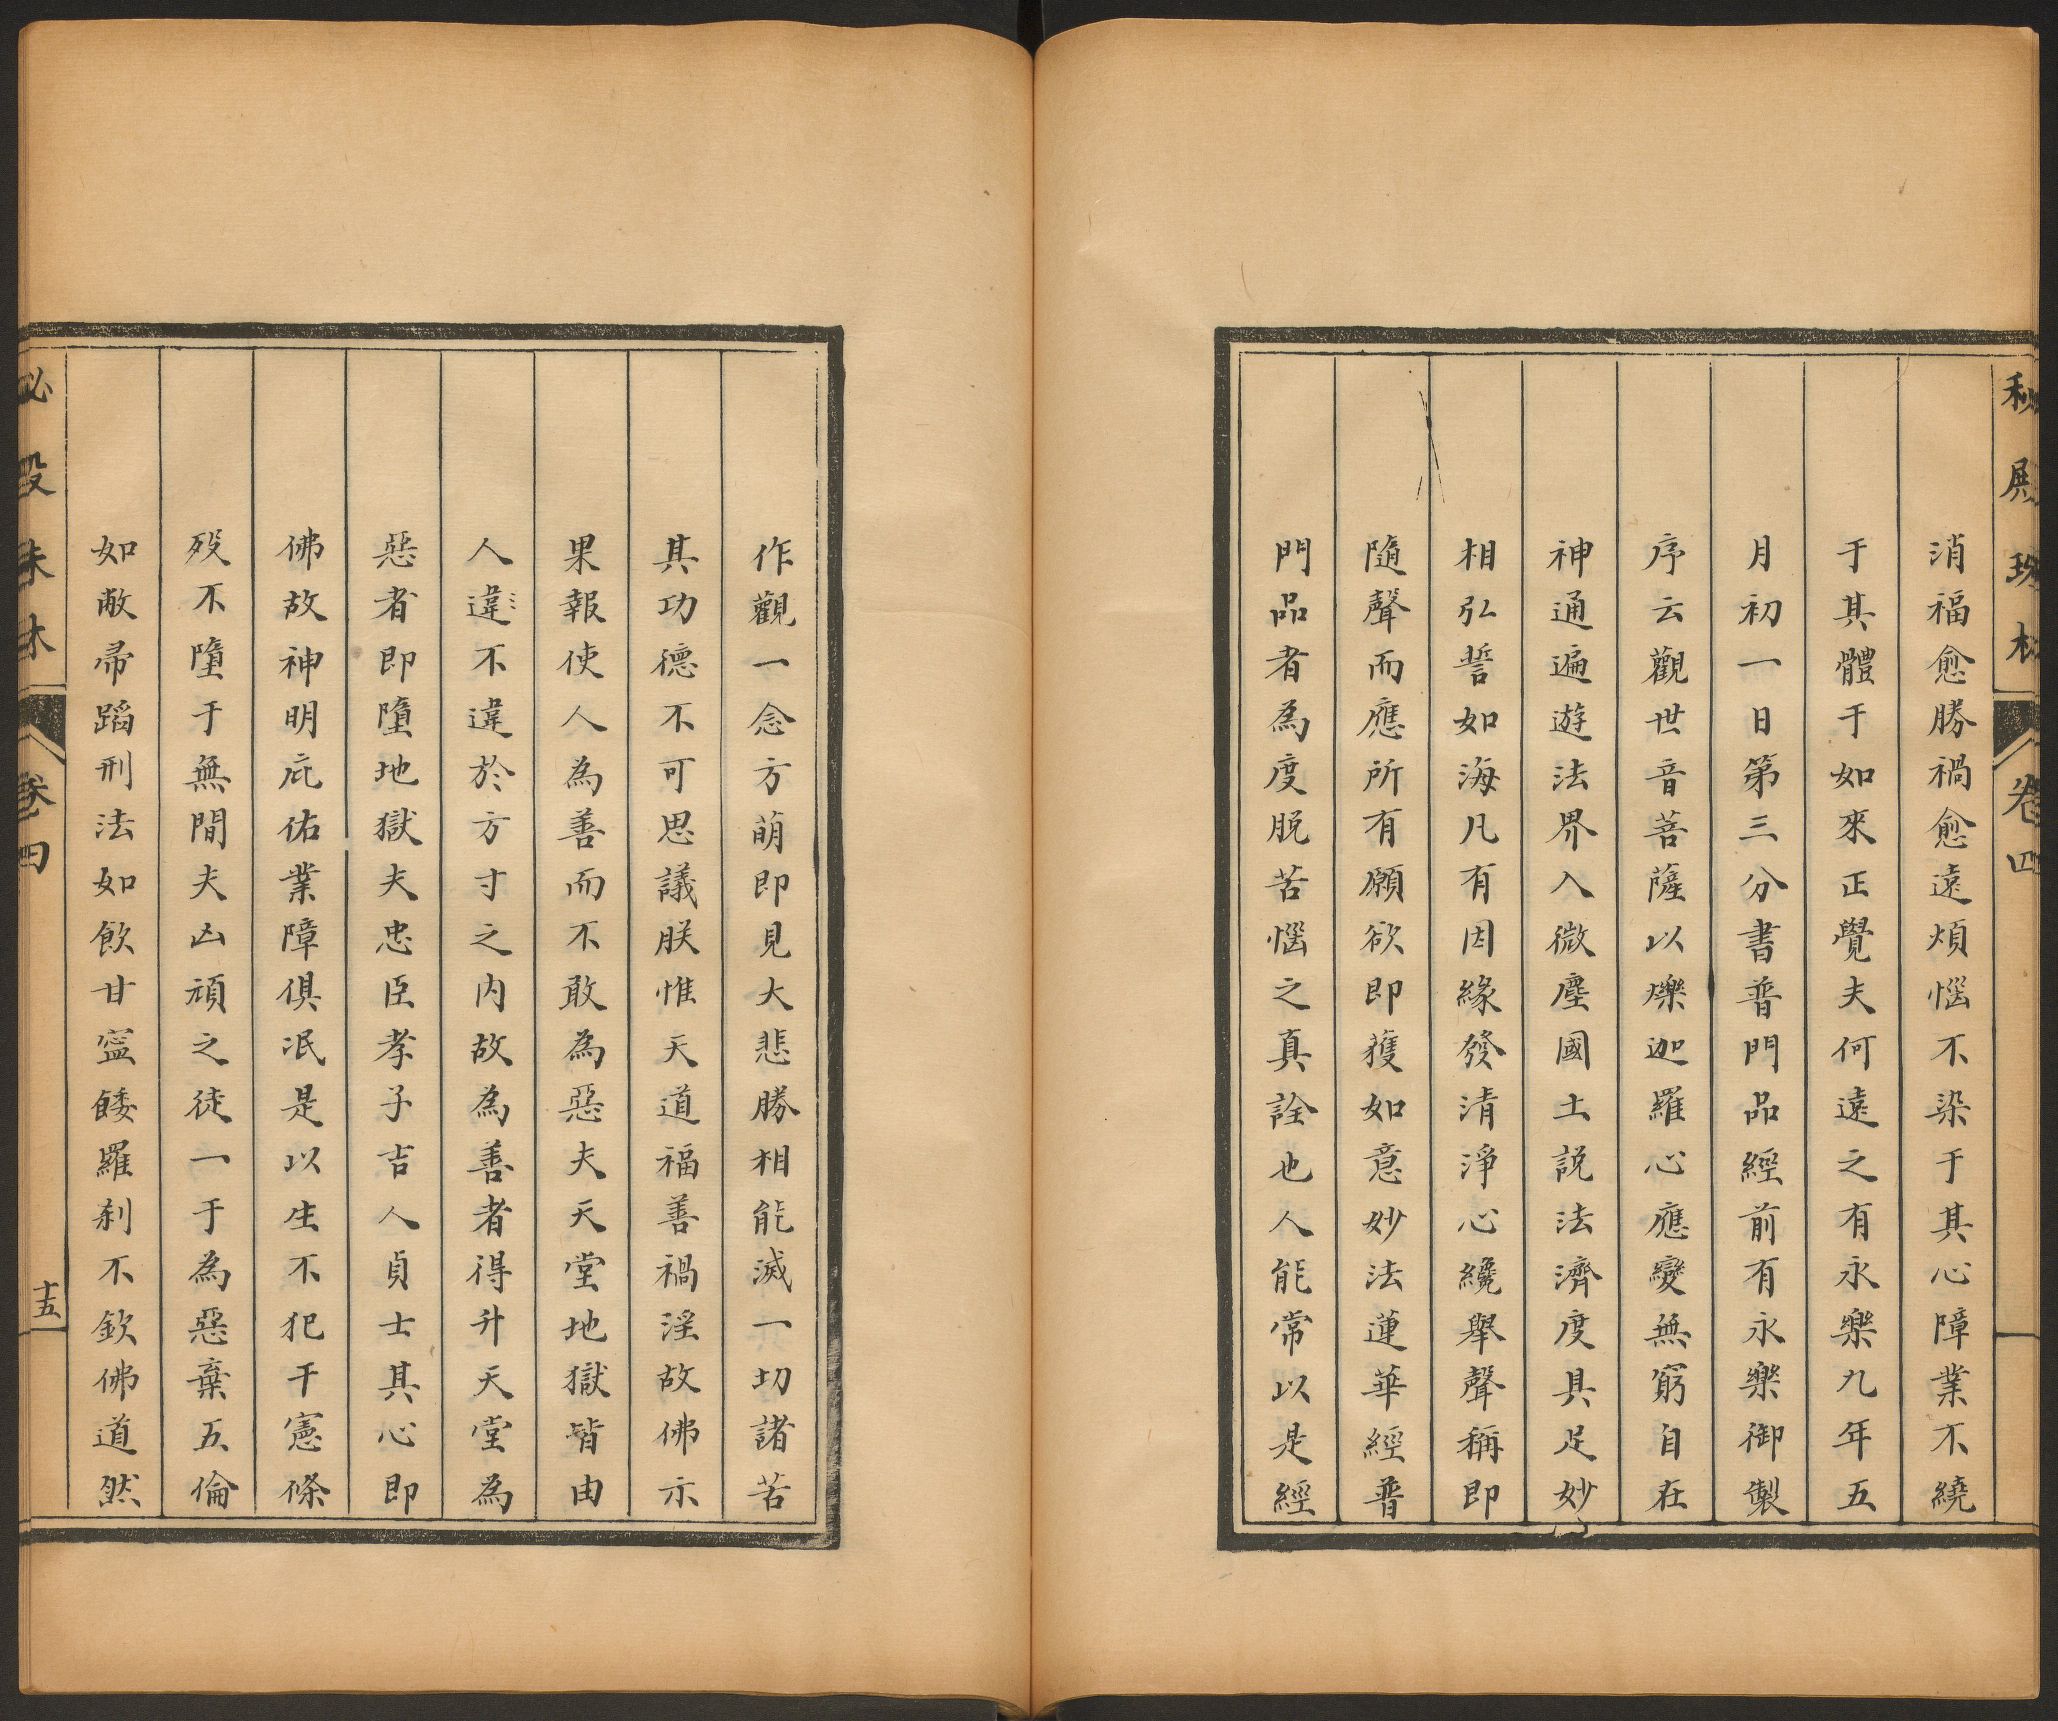 秘殿珠林 卷四
消福愈勝禍愈遠煩惱不染于其心障業不繞
于其體于如來正覺夫何遠之有永樂九年五
月初一日第三分書普門品經前有永樂御製
序云觀世音菩薩以爍迦羅心應變無窮自在
神通遍遊法界入微塵國土說法濟度具足妙
相弘誓如海凡有因緣發清淨心纔舉聲稱即
隨聲而應所有願欲即獲如意妙法蓮華經普
門品者為度脫苦惱之真詮也人能常以是經
作觀一念方萌即見大悲勝相能滅一切諸苦
其功德不可思議朕惟天道福善禍淫故佛示
果報使人為善而不敢為惡夫天堂地獄皆由
人違不違於方寸之内故為善者得升天堂為
惡者即墮地獄夫忠臣孝子吉人貞士其心即
佛故神明庇佑業障俱泯是以生不犯干憲條
歿不墮于無間夫凶頑之徒一于為惡棄五倫
如敝帚蹈刑法如飲甘寧餧羅刹不欽佛道然
秘殿珠林 卷四 十五